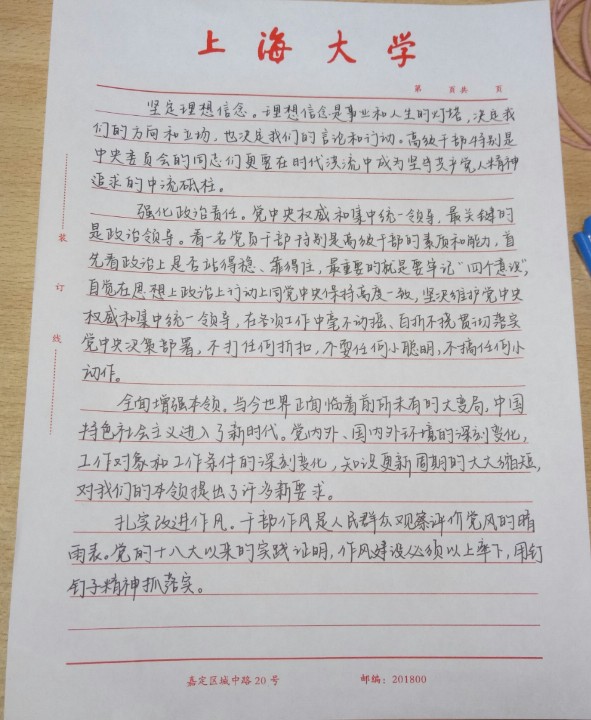 上海大学
第 页 共 页
坚定理想信念。理想信念是事业和人生的灯塔,决定我
们的方向和立场,也决定我们的言论和行动。高级干部特别是
中央委员会的同志们更要在时代洪流中成为坚守共产党人精神
追求的中流砥柱。
强化政治责任。党中央权威和集中统一领导,最关键的
是政治领导。看一名党员干部特别是高级干部的素质和能力,首
先看政治上是否站得稳、靠得住,最重要的就是要牢记“四个意识”,
自觉在思想上政治上行动上同党中央保持高度一致,坚决维护党中央
权威和集中统一领导,在各项工作中毫不动摇、百折不挠贯彻落实
党中央决策部署,不打任何折扣,不耍任何小聪明,不搞任何小
动作。
全面增强本领。当今世界正面临着前所未有的大变局,中国
特色社会主义进入了新时代。党内外、国内外环境的深刻变化,
工作对象和工作条件的深刻变化,知识更新周期的大大缩短,
对我们的本领提出了许多新要求。
扎实改进作风。干部作风是人民群众观察评价党风的晴
雨表。党的十八大以来的实践证明,作风建设必须以上率下,用钉
钉子精神抓落实。
装
订
线
嘉定区城中路20号 邮编:201800